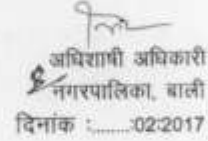 अधिशाषी अधिकारी
नगरपालिका, बाली
दिनांक :.......:02:2017